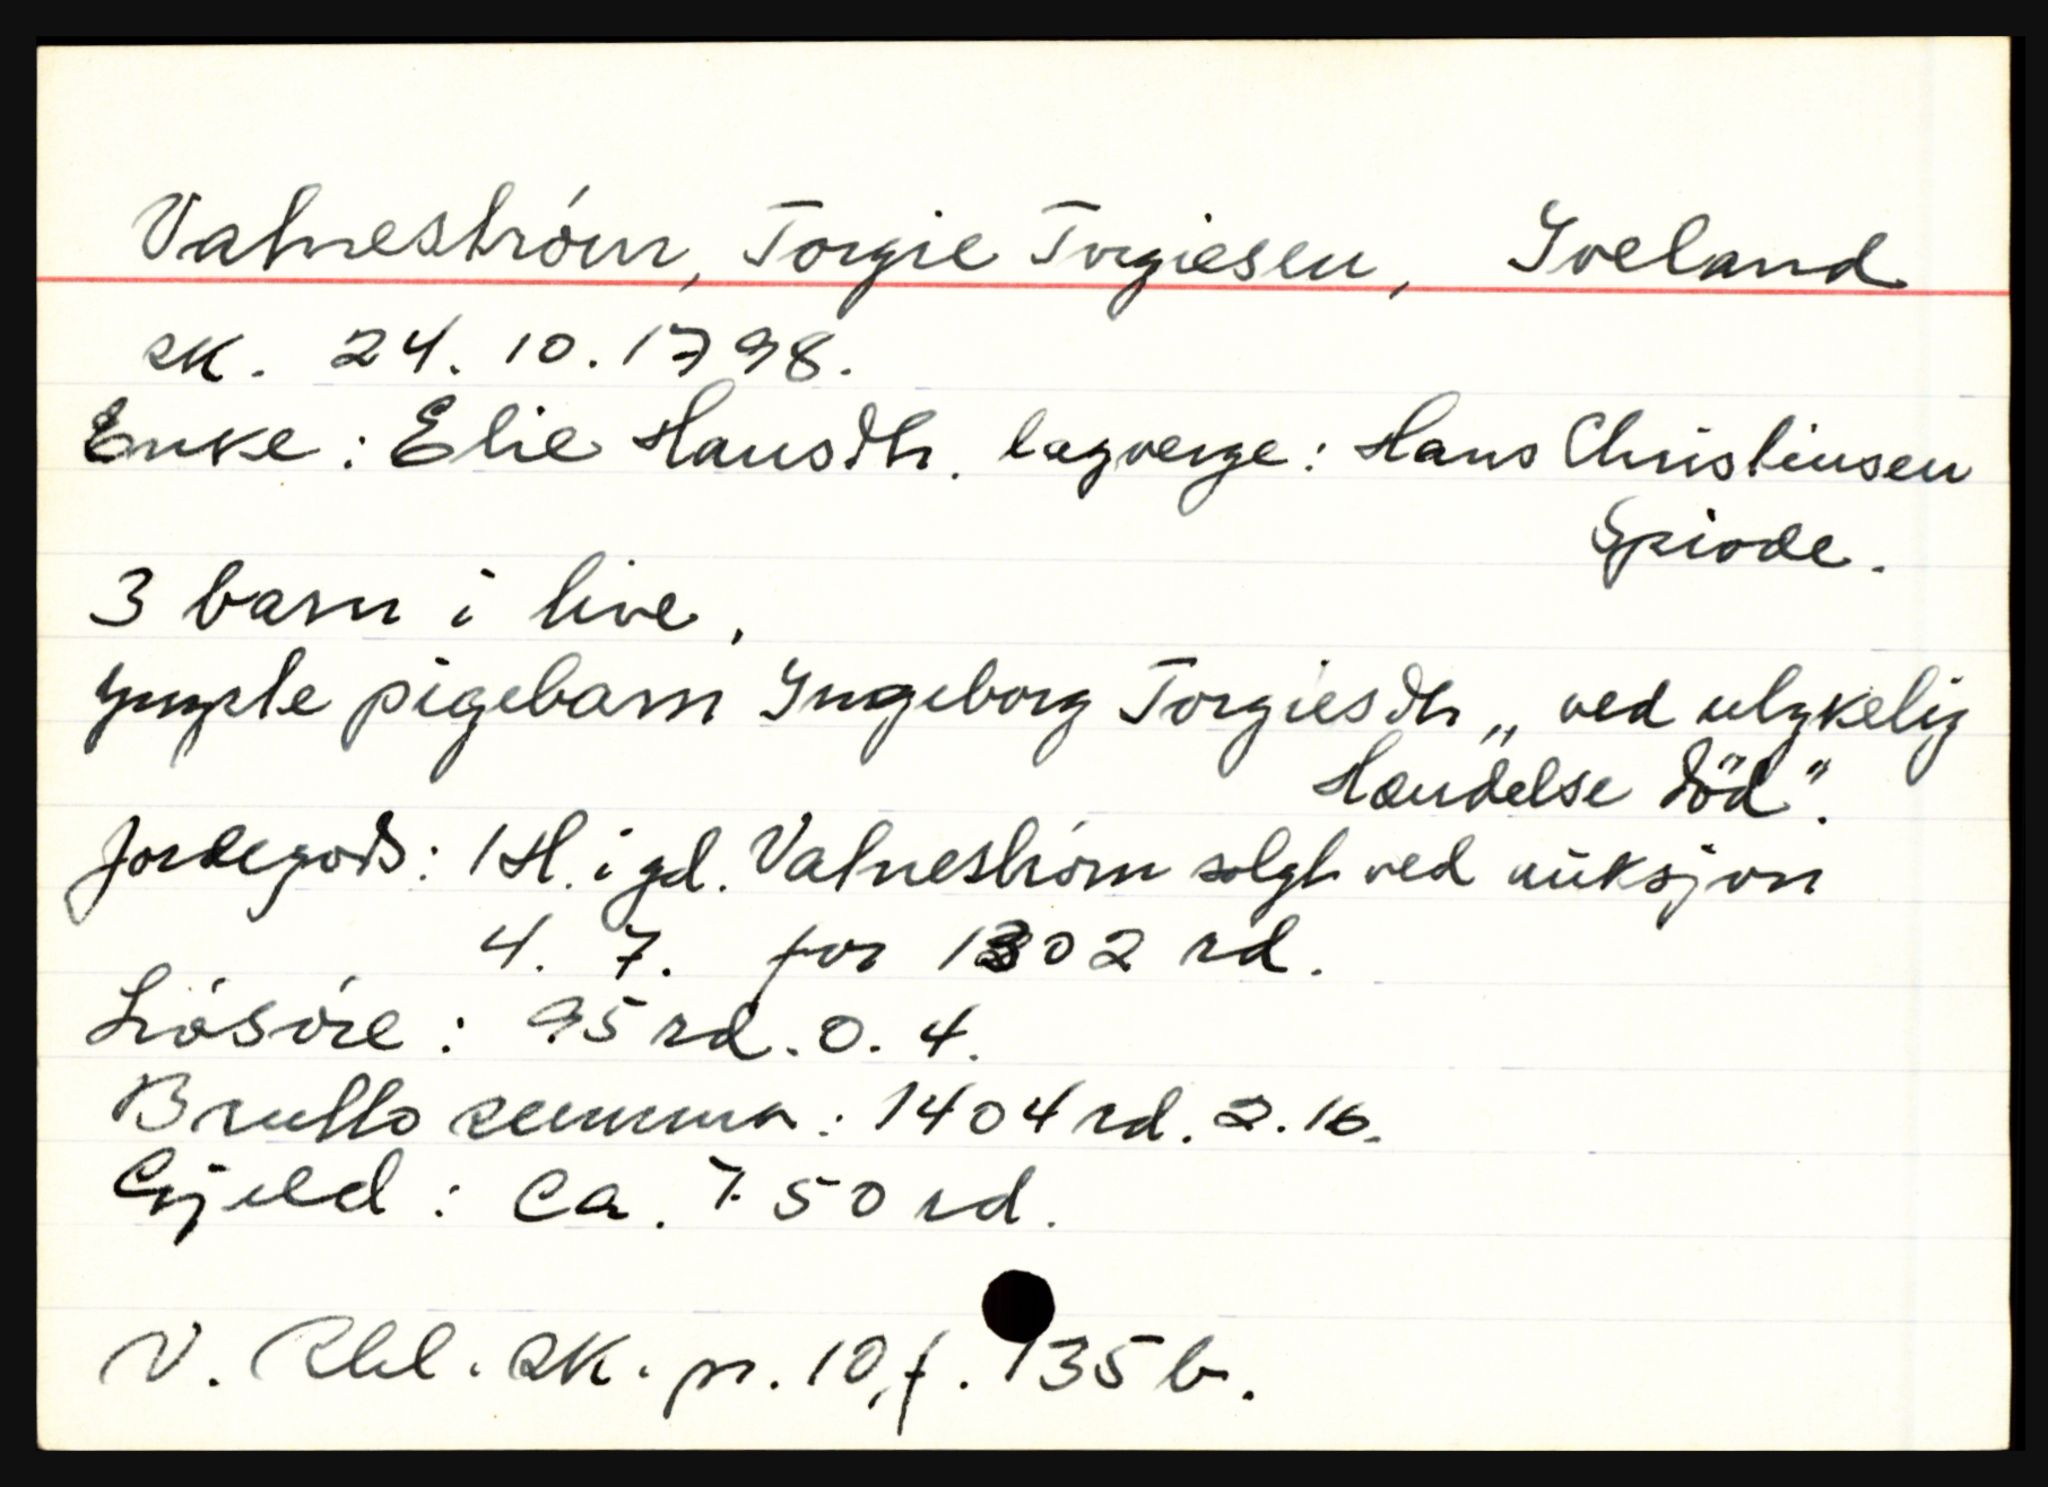 Vatneström, Torgie Torgiesen, Iveland
sk. 24. 10. 1798.
Enke: Elie Hansdtr. lagverge: Hans Christensen
3 barn i live,
yngste pigebarn Ingeborg Torgiesdtr „ved ulykelig
Hændelse död".
Jordegods: 1 H. i gd. Vatneström solgt ved auksjon
4. 7. for 1302 rd.
Lösöre: 95 rd. 0. 4.
Brutto summa: 1404 rd. 2. 16.
Gjeld: Ca. 750 rd.
V. Rbl. sk. pr. 10, f. 135 b.